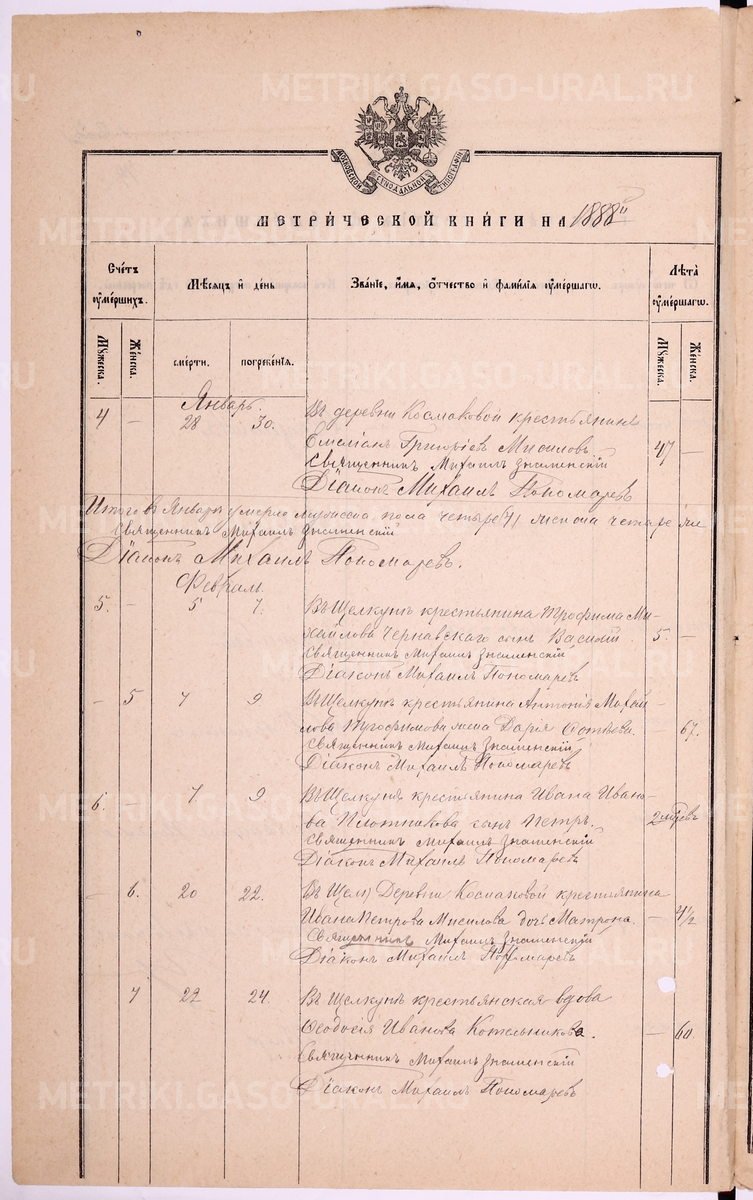 МОСКОВСКОЙ СѴНОДАЛЬНОЙ ТИПОГРАФІИ
МЕТРИ́ЧЕСКОЙ КНИ́ГИ НА 1888й
Сче́тъ ᲂу҆ме́ршихъ.
Мѣ́сѧцъ и҆ де́нь
Зва́нїе, и҆́мѧ, ѻ҆́тчество и҆ фами́лїѧ ᲂу҆ме́ршагѡ.
Лѣ́та ᲂу҆ме́ршагѡ.
Мꙋ́жеска.
Же́нска.
сме́рти.
погребе́нїѧ.
Мꙋ́жеска.
Же́нска.
Январь.
4 – 28 30. Въ деревни Космаковой крестьянинъ
Емеліанъ Григоріевъ Мисиловъ. 47 –
Священникъ Михаилъ Знаменскій
Діаконъ Михаилъ Пономаревъ
Итого въ Январѣ умерло мужеска пола четыре (4) женска четыре
Священникъ Михаилъ Знаменскій
Діаконъ Михаилъ Пономаревъ.
Февраль.
5. – 5 7. Въ Щелкунѣ крестьянина Трофима Ми-
хайлова Чернавскаго сынъ Василій. 5. –
Священникъ Михаилъ Знаменскій
Діаконъ Михаилъ Пономаревъ
– 5 7 9 Въ Щелкунѣ крестьянина Антонія Михай-
лова жена Дарія – 67.
Священникъ Михаилъ Знаменскій
Діаконъ Михаилъ Пономаревъ
6. – 7 9 Въ Щелкунѣ крестьянина Ивана Ивано-
ва Плотникова сынъ Петръ. 2
Священникъ Михаилъ Знаменскій
Діаконъ Михаилъ Пономаревъ
– 6. 20 22. Въ Щел) Деревни Космаковой крестьянина
Ивана Петрова Мисилова дочь Матрона. – 4½
Священникъ Михаилъ Знаменскій
Діаконъ Михаилъ Пономаревъ
7 22 24. Въ Щелкунѣ крестьянская вдова
Ѳеодосія Иванова Котельникова. – 60.
Священникъ Михаилъ Знаменскій
Діаконъ Михаилъ Пономаревъ
METRIKI.GASO-URAL.RU